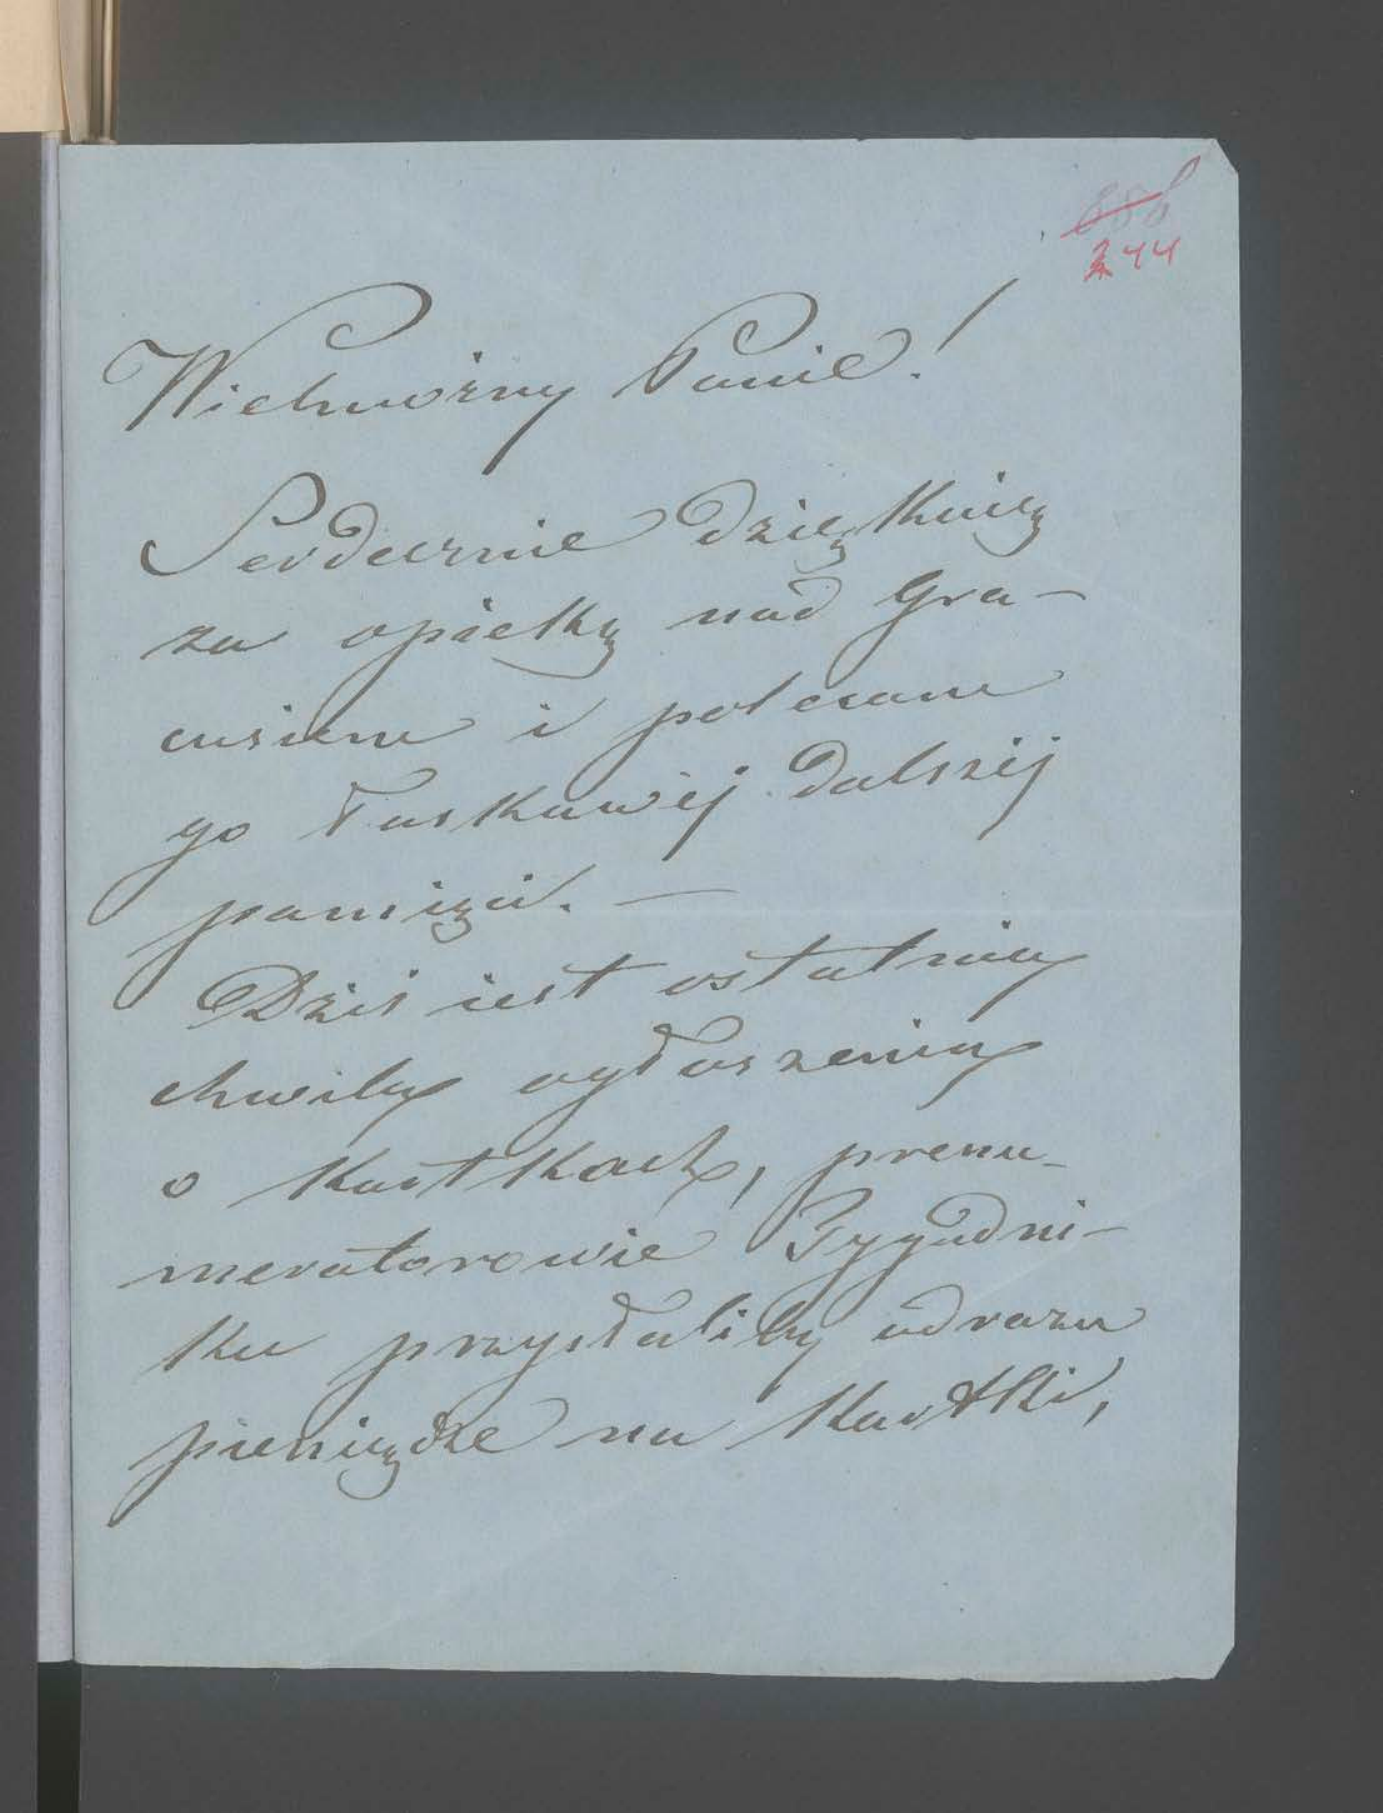 244
Wielmożny Panie!
Serdecznie dziękuię
za opiekę nad Gra-
cusiem i polecam
go łaskawéj dalszéj
pamięci. —
Dziś iest ostatnią
chwilą ogłoszenia
o kartkach, prenu-
meratorowie Tygodni-
ka przysłaliby odrazu
pieniądze na kartki,